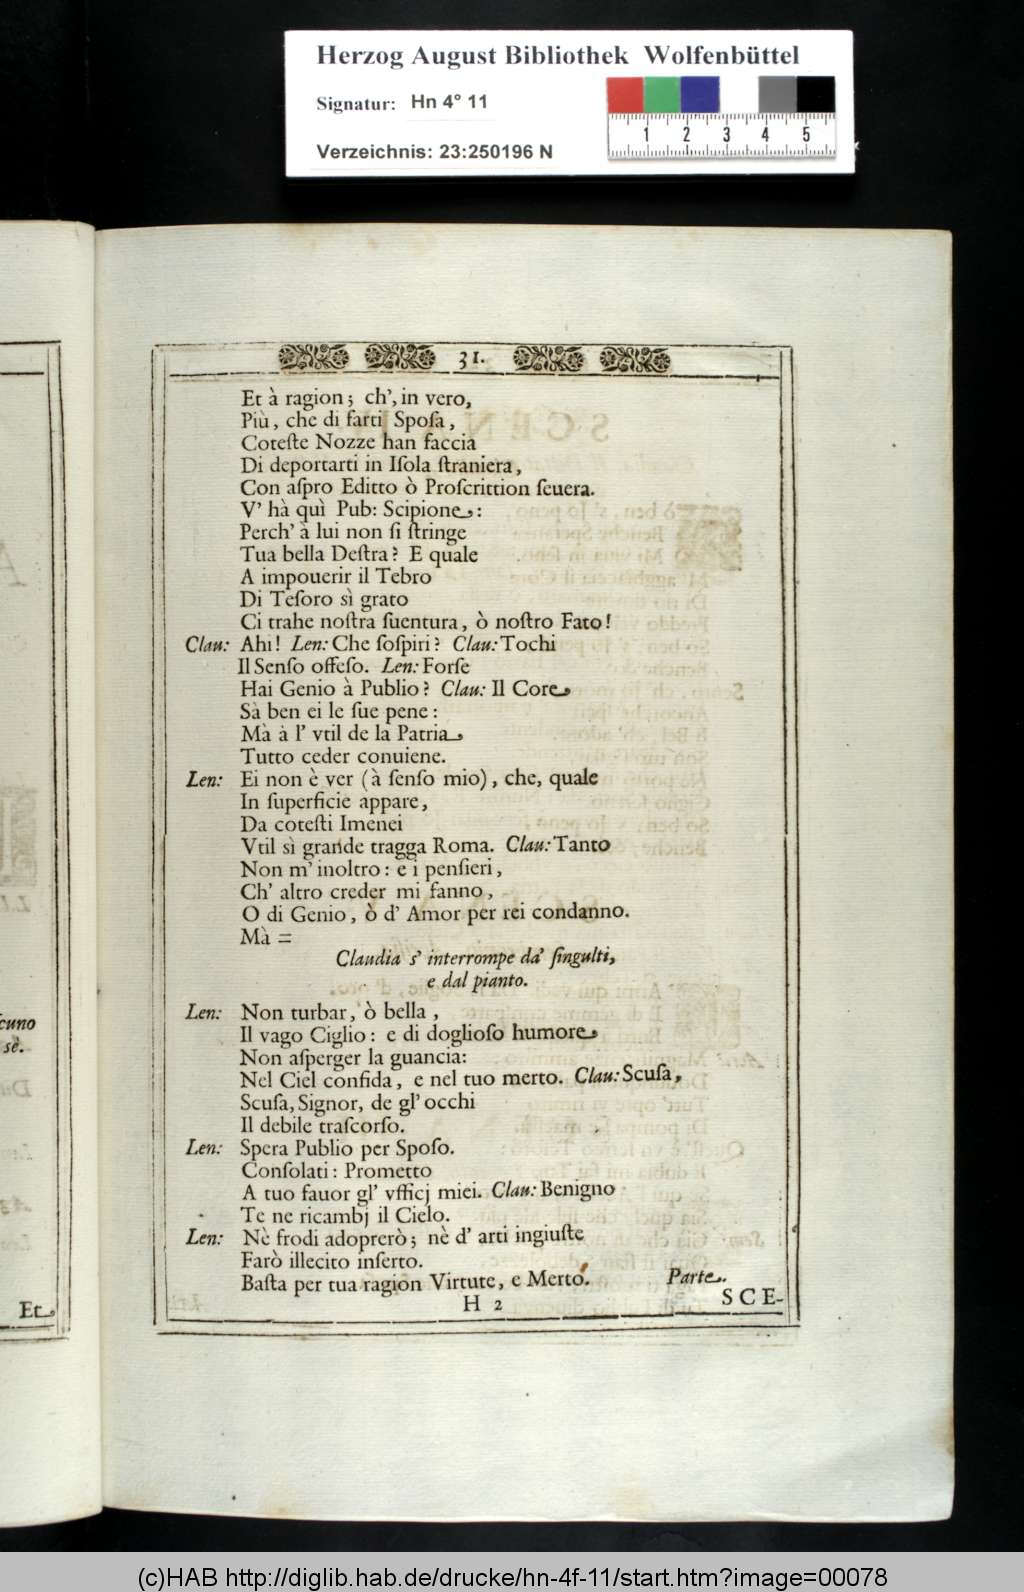 Herzog August Bibliothek Wolfenbüttel
Signatur: Hn 4° 11
Verzeichnis: 23:250196 N
1 2 3 4 5
31.
Et à ragion; ch', in vero,
Più, che di farti Sposa,
Coteſte Nozze han faccia
Di deportarti in Iſola ſtraniera,
Con aſpro Editto ò Proſcrittion ſeuera.
V' hà quì Pub: Scipione:
Perch' à lui non ſi ſtringe
Tua bella Deſtra? E quale
A impouerir il Tebro
Di Teſoro sì grato
Ci trahe noſtra ſuentura, ò noſtro Fato!
Clau: Ahi! Len: Che ſoſpiri? Clau: Tochi
Il Senſo offeſo. Len: Forſe
Hai Genio à Publio? Clau: Il Core
Sà ben ei le ſue pene:
Mà à l' vtil de la Patria
Tutto ceder conuiene.
Len: Ei non è ver (à ſenſo mio), che, quale
In ſuperficie appare,
Da coteſti Imenei
Vtil sì grande tragga Roma. Clau: Tanto
Non m' inoltro: e i penſieri,
Ch' altro creder mi fanno,
O di Genio, ò d' Amor per rei condanno.
Mà =
Claudia s' interrompe da' ſingulti,
e dal pianto.
Len: Non turbar, ò bella,
Il vago Ciglio: e di doglioſo humore
Non aſperger la guancia:
Nel Ciel confida, e nel tuo merto. Clau: Scuſa,
Scuſa, Signor, de gl' occhi
Il debile traſcorſo.
Len: Spera Publio per Spoſo.
Conſolati: Prometto
A tuo fauor gl' vfficj miei. Clau: Benigno
Te ne ricambj il Cielo.
Len: Nè frodi adoprerò; nè d' arti ingiuſte
Farò illecito inſerto.
Baſta per tua ragion Virtute, e Merto. Parte.
H 2 SCE-
cuno
sè.
Et
(c)HAB http://diglib.hab.de/drucke/hn-4f-11/start.htm?image=00078